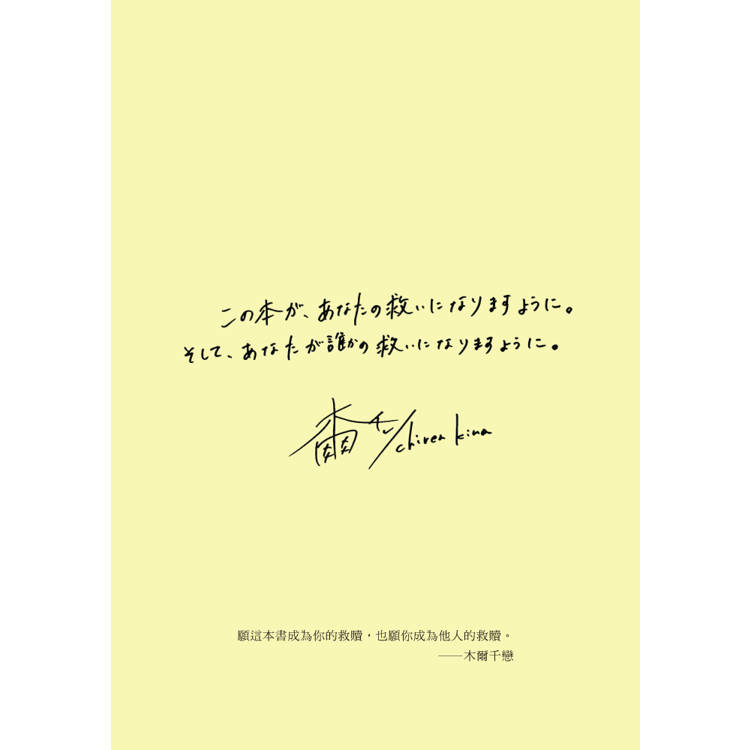 この本が、あなたの救いになりますように。
そして、あなたが誰かの救いになりますように。
chiren kina
願這本書成為你的救贖，也願你成為他人的救贖。
——木爾千戀